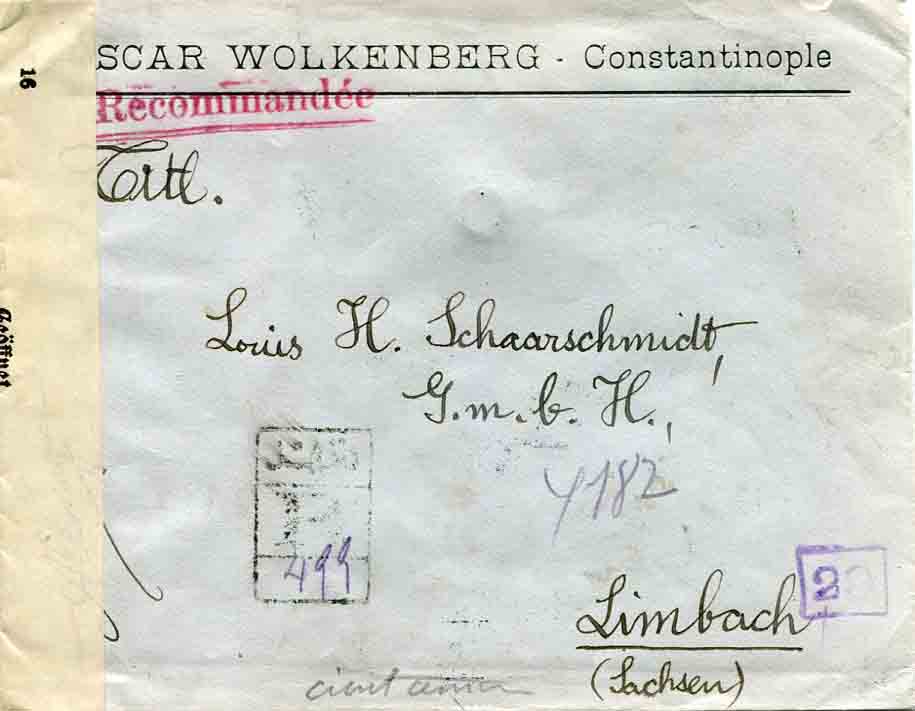 SCAR WOLKENBERG - Constantinople
Recommandée
16
Titl.
Geöffnet
Louis H. Schaarschmidt,
G.m.b.H.,
4182
499
2
Limbach
(Sachsen)